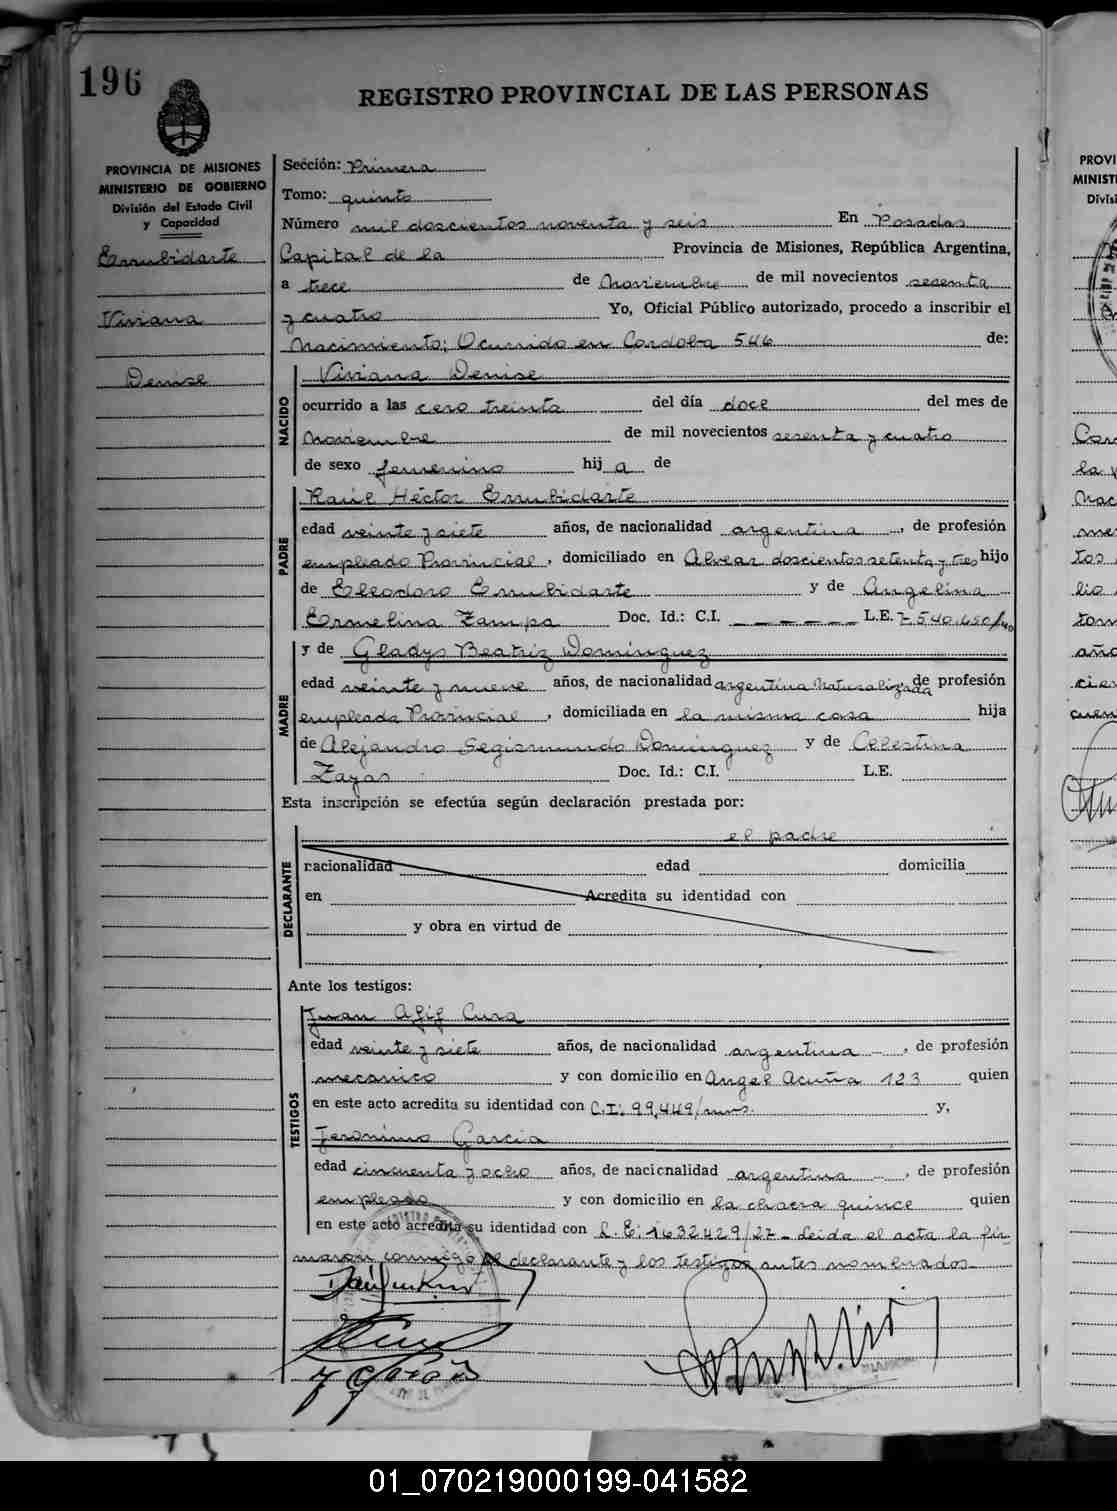 196
REGISTRO PROVINCIAL DE LAS PERSONAS
PROVINCIA DE MISIONES
MINISTERIO DE GOBIERNO
División del Estado Civil
y Capacidad
Errubidarte
Viviana
Denise
Sección: Primera
Tomo: quinto
Número mil doscientos noventa y seis En Posadas
Capital de la Provincia de Misiones, República Argentina,
a trece de Noviembre de mil novecientos sesenta
y cuatro Yo, Oficial Público autorizado, procedo a inscribir el
Nacimiento; Ocurrido en Cordoba 546 de:
NACIDO
Viviana Denise
ocurrido a las cero treinta del día doce del mes de
Noviembre de mil novecientos sesenta y cuatro
de sexo femenino hij a de
PADRE
Raúl Héctor Errubidarte
edad veinte y siete años, de nacionalidad argentina, de profesión
empleado Provincial, domiciliado en Alvear doscientos setenta y tres hijo
de Eleodoro Errubidarte y de Angelina
Ermelina Zampa Doc. Id.: C.I. — — — — — — L.E. 7.540.450/40
MADRE
y de Gladys Beatriz Dominguez
edad veinte y nueve años, de nacionalidad argentina Naturalizada, de profesión
empleada Provincial, domiciliada en la misma casa hija
de Alejandro Segismundo Dominguez y de Celestina
Zayas Doc. Id.: C.I. L.E.
Esta inscripción se efectúa según declaración prestada por:
DECLARANTE
el padre
nacionalidad edad domicilia
en Acredita su identidad con
y obra en virtud de
Ante los testigos:
TESTIGOS
Juan Afif Cura
edad veinte y siete años, de nacionalidad argentina, de profesión
mecanico y con domicilio en Angel Acuña 123 quien
en este acto acredita su identidad con C.I: 99.449/mns. y,
Jeronimo Garcia
edad cincuenta y ocho años, de nacionalidad argentina, de profesión
empleado y con domicilio en la chacra quince quien
en este acto acredita su identidad con L.E: 1632429/27- leida el acta la fir-
maron conmigo el declarante y los testigos antes nombrados-
PROVI
MINIST
Divis
01_070219000199-041582